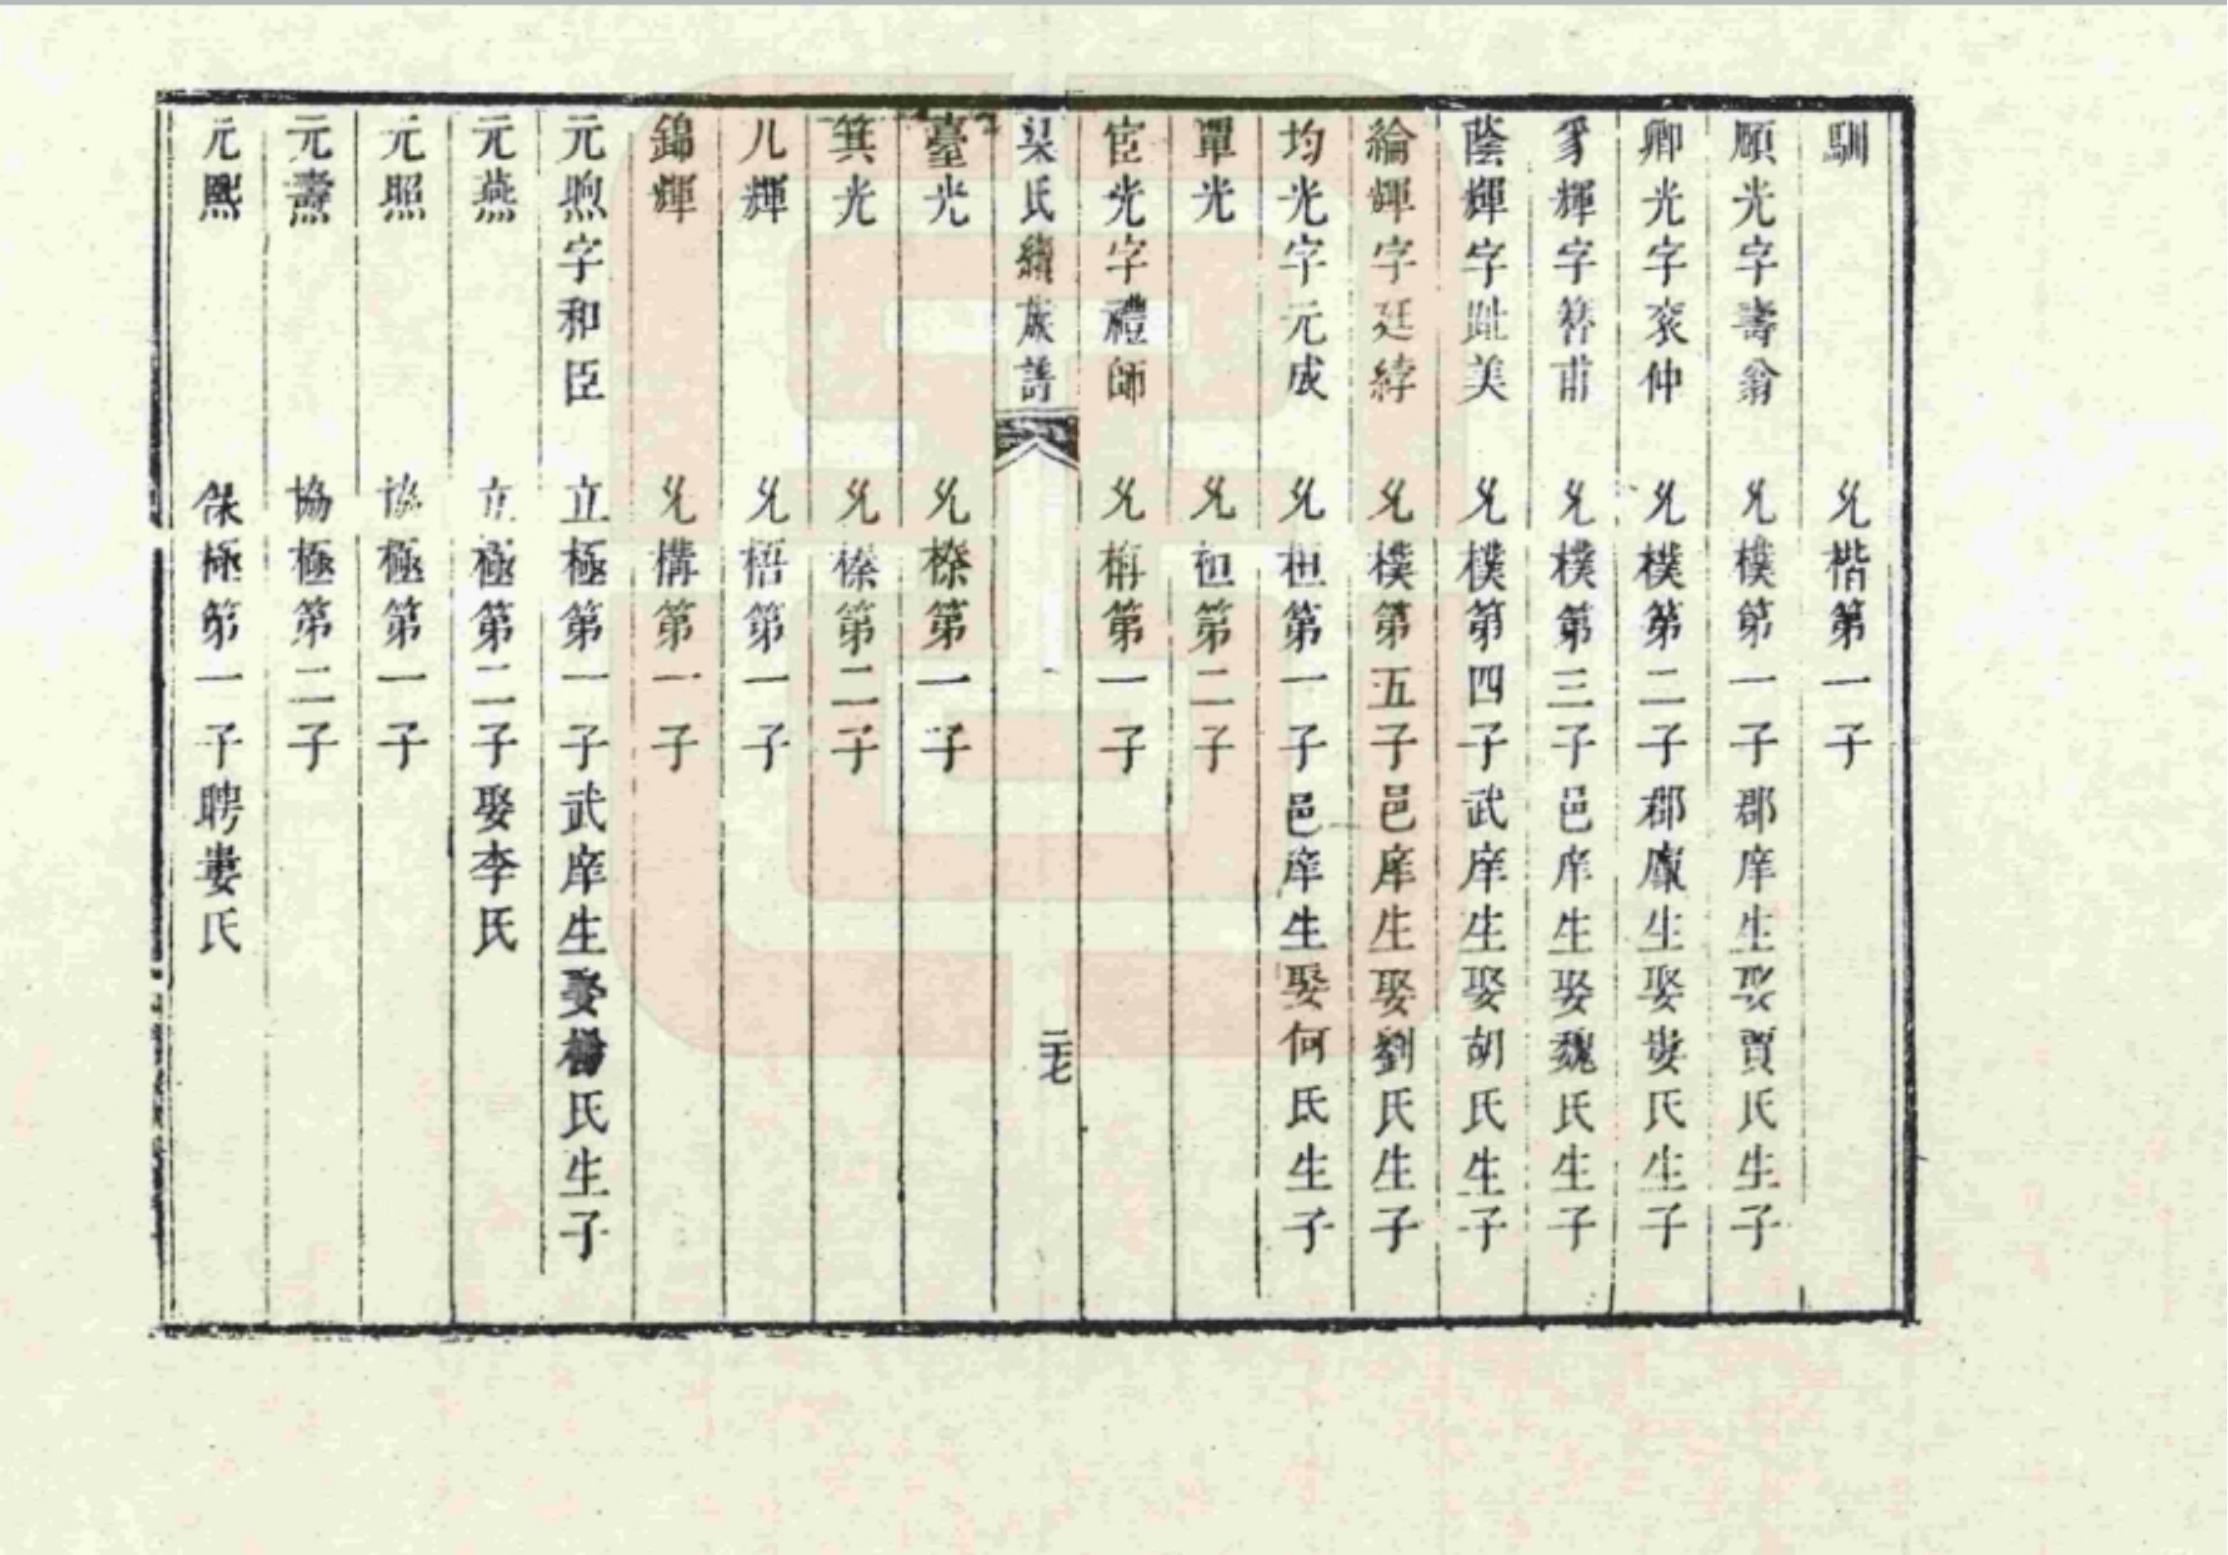 馴 允楷第一子
願光字壽翁 允樸第一子郡庠生娶賈氏生子
卿光字袞仲 允樸第二子郡廩生娶婁氏生子
豸輝字簪甫 允樸第三子邑庠生娶魏氏生子
蔭輝字趾美 允樸第四子武庠生娶胡氏生子
綸輝字廷綍 允樸第五子邑庠生娶劉氏生子
均光字元成 允桓第一子邑庠生娶何氏生子
覃光 允桓第二子
官光字禮師 允第一子
氏續族譜 二十七
臺光 允榛第一子
箕光 允榛第二子
儿輝 允梧第一子
錦輝 允構第一子
元煦字和臣 立極第一子武庠生娶楊氏生子
元燕 立極第二子娶李氏
元照 協極第一子
元燾 協極第二子
元熙 保極第一子聘婁氏